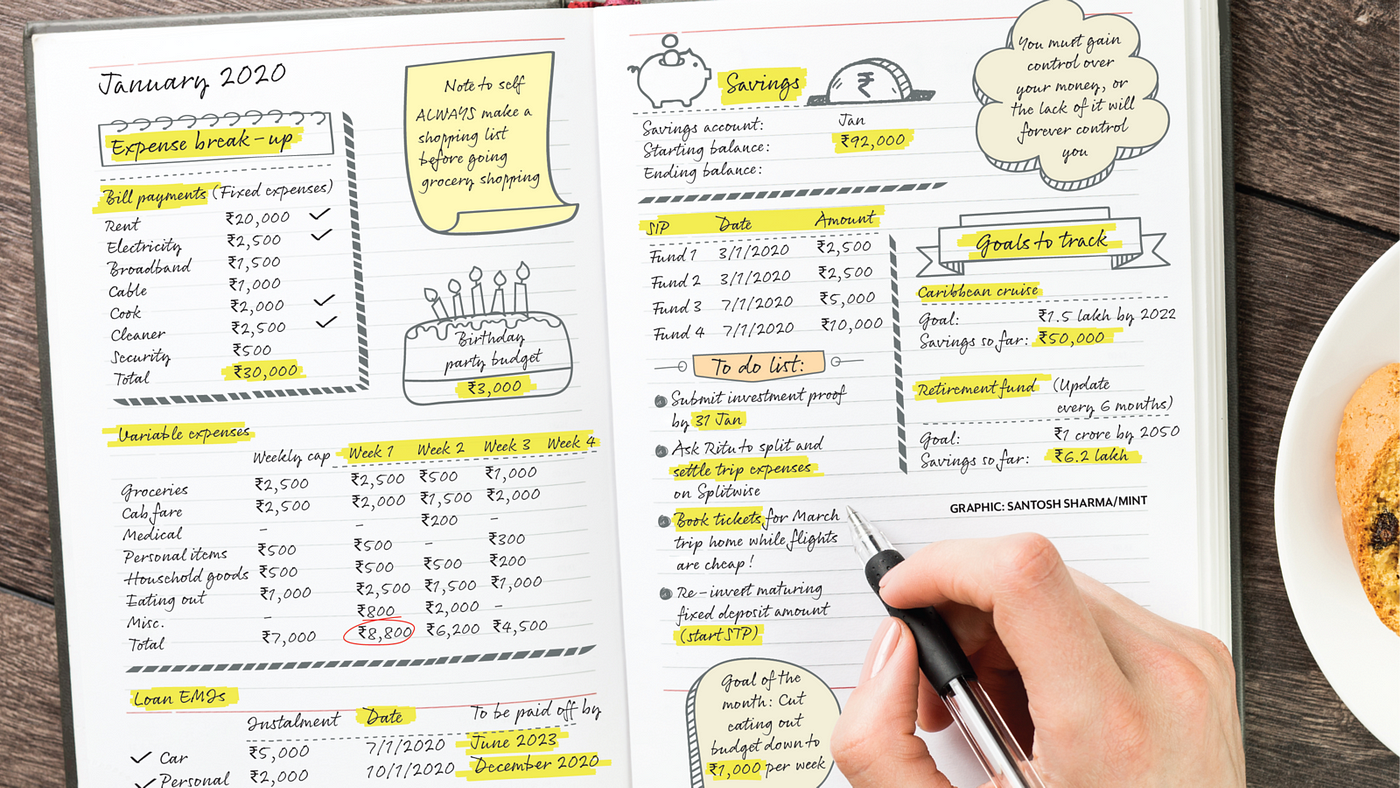 January 2020
Expense break-up
Bill payments (Fixed expenses)
Rent ₹20,000 ✓
Electricity ₹2,500 ✓
Broadband ₹1,500
Cable ₹1,000
Cook ₹2,000 ✓
Cleaner ₹2,500 ✓
Security ₹500
Total ₹30,000
Note to self
ALWAYS make a
shopping list
before going
grocery shopping
Birthday
party budget
₹3,000
Variable expenses
Weekly cap Week 1 Week 2 Week 3 Week 4
Groceries ₹2,500 ₹2,500 ₹500 ₹1,000
Cab fare ₹2,500 ₹2,000 ₹1,500 ₹2,000
Medical - - ₹200 -
Personal items ₹500 ₹500 - ₹300
Household goods ₹500 ₹500 ₹500 ₹200
Eating out ₹1,000 ₹2,500 ₹1,500 ₹1,000
Misc. - ₹800 ₹2,000 -
Total ₹7,000 ₹8,800 ₹6,200 ₹4,500
Loan EMIs
Instalment Date To be paid off by
✓ Car ₹5,000 7/1/2020 June 2023
✓ Personal ₹2,000 10/1/2020 December 2020
Savings
₹
Jan
Savings account:
Starting balance: ₹92,000
Ending balance:
You must gain
control over
your money, or
the lack of it will
forever control
you
SIP Date Amount
Fund 1 3/1/2020 ₹2,500
Fund 2 3/1/2020 ₹2,500
Fund 3 7/1/2020 ₹5,000
Fund 4 7/1/2020 ₹10,000
To do list:
Submit investment proof
by 31 Jan
Ask Ritu to split and
settle trip expenses
on Splitwise
Book tickets for March
trip home while flights
are cheap!
Re-invest maturing
fixed deposit amount
(start STP)
Goal of the
month: Cut
eating out
budget down to
₹1,000 per week
Goals to track
Caribbean cruise
Goal: ₹1.5 lakh by 2022
Savings so far: ₹50,000
Retirement fund (Update
every 6 months)
Goal: ₹1 crore by 2050
Savings so far: ₹6.2 lakh
GRAPHIC: SANTOSH SHARMA/MINT